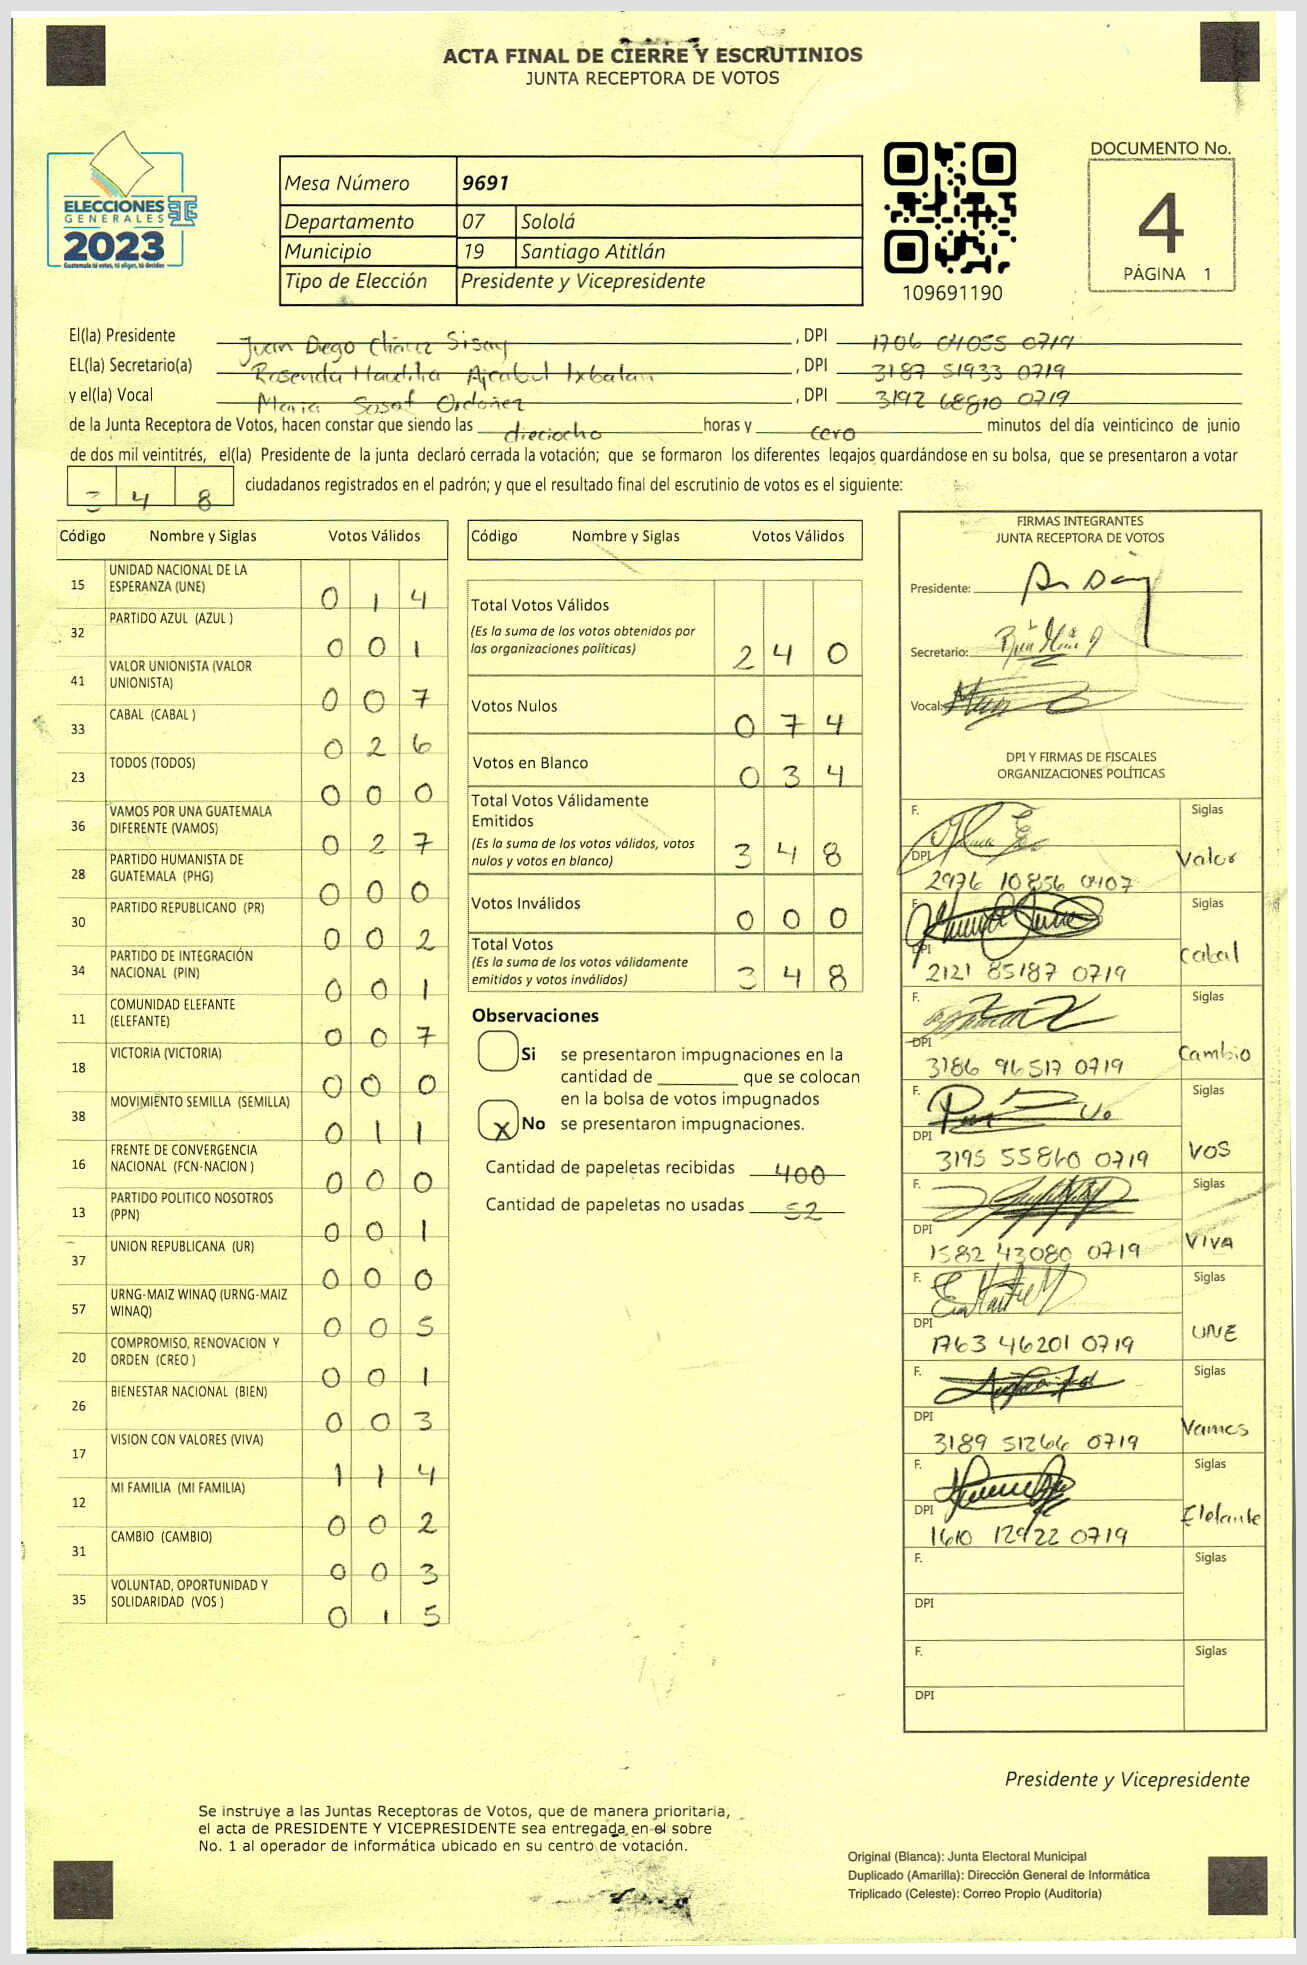 ACTA FINAL DE CIERRE Y ESCRUTINIOS
JUNTA RECEPTORA DE VOTOS
ELECCIONES
GENERALES
2023
Guatemala tú votas, tú eliges, tú decides
Mesa Número 9691
Departamento 07 Sololá
Municipio 19 Santiago Atitlán
Tipo de Elección Presidente y Vicepresidente
109691190
DOCUMENTO No.
4
PÁGINA 1
El(la) Presidente Juan Diego Chávez Sisay, DPI 1706 04055 0719
EL(la) Secretario(a) Rosenda Ajcabul Ixbalan, DPI 3187 51933 0719
y el(la) Vocal Maria Sosof Ordoñez, DPI 3192 68810 0719
de la Junta Receptora de Votos, hacen constar que siendo las dieciocho horas y cero minutos del día veinticinco de junio
de dos mil veintitrés, el(la) Presidente de la junta declaró cerrada la votación; que se formaron los diferentes legajos guardándose en su bolsa, que se presentaron a votar
3 4 8 ciudadanos registrados en el padrón; y que el resultado final del escrutinio de votos es el siguiente:
Código Nombre y Siglas Votos Válidos
15 UNIDAD NACIONAL DE LA ESPERANZA (UNE) 0 1 4
32 PARTIDO AZUL (AZUL ) 0 0 1
41 VALOR UNIONISTA (VALOR UNIONISTA) 0 0 7
33 CABAL (CABAL ) 0 2 6
23 TODOS (TODOS) 0 0 0
36 VAMOS POR UNA GUATEMALA DIFERENTE (VAMOS) 0 2 7
28 PARTIDO HUMANISTA DE GUATEMALA (PHG) 0 0 0
30 PARTIDO REPUBLICANO (PR) 0 0 2
34 PARTIDO DE INTEGRACIÓN NACIONAL (PIN) 0 0 1
11 COMUNIDAD ELEFANTE (ELEFANTE) 0 0 7
18 VICTORIA (VICTORIA) 0 0 0
38 MOVIMIENTO SEMILLA (SEMILLA) 0 1 1
16 FRENTE DE CONVERGENCIA NACIONAL (FCN-NACION ) 0 0 0
13 PARTIDO POLITICO NOSOTROS (PPN) 0 0 1
37 UNION REPUBLICANA (UR) 0 0 0
57 URNG-MAIZ WINAQ (URNG-MAIZ WINAQ) 0 0 5
20 COMPROMISO, RENOVACION Y ORDEN (CREO ) 0 0 1
26 BIENESTAR NACIONAL (BIEN) 0 0 3
17 VISION CON VALORES (VIVA) 1 1 4
12 MI FAMILIA (MI FAMILIA) 0 0 2
31 CAMBIO (CAMBIO) 0 0 3
35 VOLUNTAD, OPORTUNIDAD Y SOLIDARIDAD (VOS ) 0 1 5
Código Nombre y Siglas Votos Válidos
Total Votos Válidos
(Es la suma de los votos obtenidos por
las organizaciones políticas) 2 4 0
Votos Nulos 0 7 4
Votos en Blanco 0 3 4
Total Votos Válidamente
Emitidos
(Es la suma de los votos válidos, votos
nulos y votos en blanco) 3 4 8
Votos Inválidos 0 0 0
Total Votos
(Es la suma de los votos válidamente
emitidos y votos inválidos) 3 4 8
Observaciones
Si se presentaron impugnaciones en la
cantidad de ________ que se colocan
en la bolsa de votos impugnados
X No se presentaron impugnaciones.
Cantidad de papeletas recibidas 400
Cantidad de papeletas no usadas 52
FIRMAS INTEGRANTES
JUNTA RECEPTORA DE VOTOS
Presidente:
Secretario:
Vocal:
DPI Y FIRMAS DE FISCALES
ORGANIZACIONES POLÍTICAS
F. Siglas
DPI 2976 10856 0407 Valor
F. Siglas
DPI 2121 85187 0719 Cabal
F. Siglas
DPI 3186 96517 0719 Cambio
F. Siglas
DPI 3195 55860 0719 VOS
F. Siglas
DPI 1582 43080 0719 VIVA
F. Siglas
DPI 1763 46201 0719 UNE
F. Siglas
DPI 3189 51266 0719 Vamos
F. Siglas
DPI 1610 12922 0719 Elefante
F. Siglas
DPI
F. Siglas
DPI
Presidente y Vicepresidente
Se instruye a las Juntas Receptoras de Votos, que de manera prioritaria,
el acta de PRESIDENTE Y VICEPRESIDENTE sea entregada en el sobre
No. 1 al operador de informática ubicado en su centro de votación.
Original (Blanca): Junta Electoral Municipal
Duplicado (Amarilla): Dirección General de Informática
Triplicado (Celeste): Correo Propio (Auditoría)